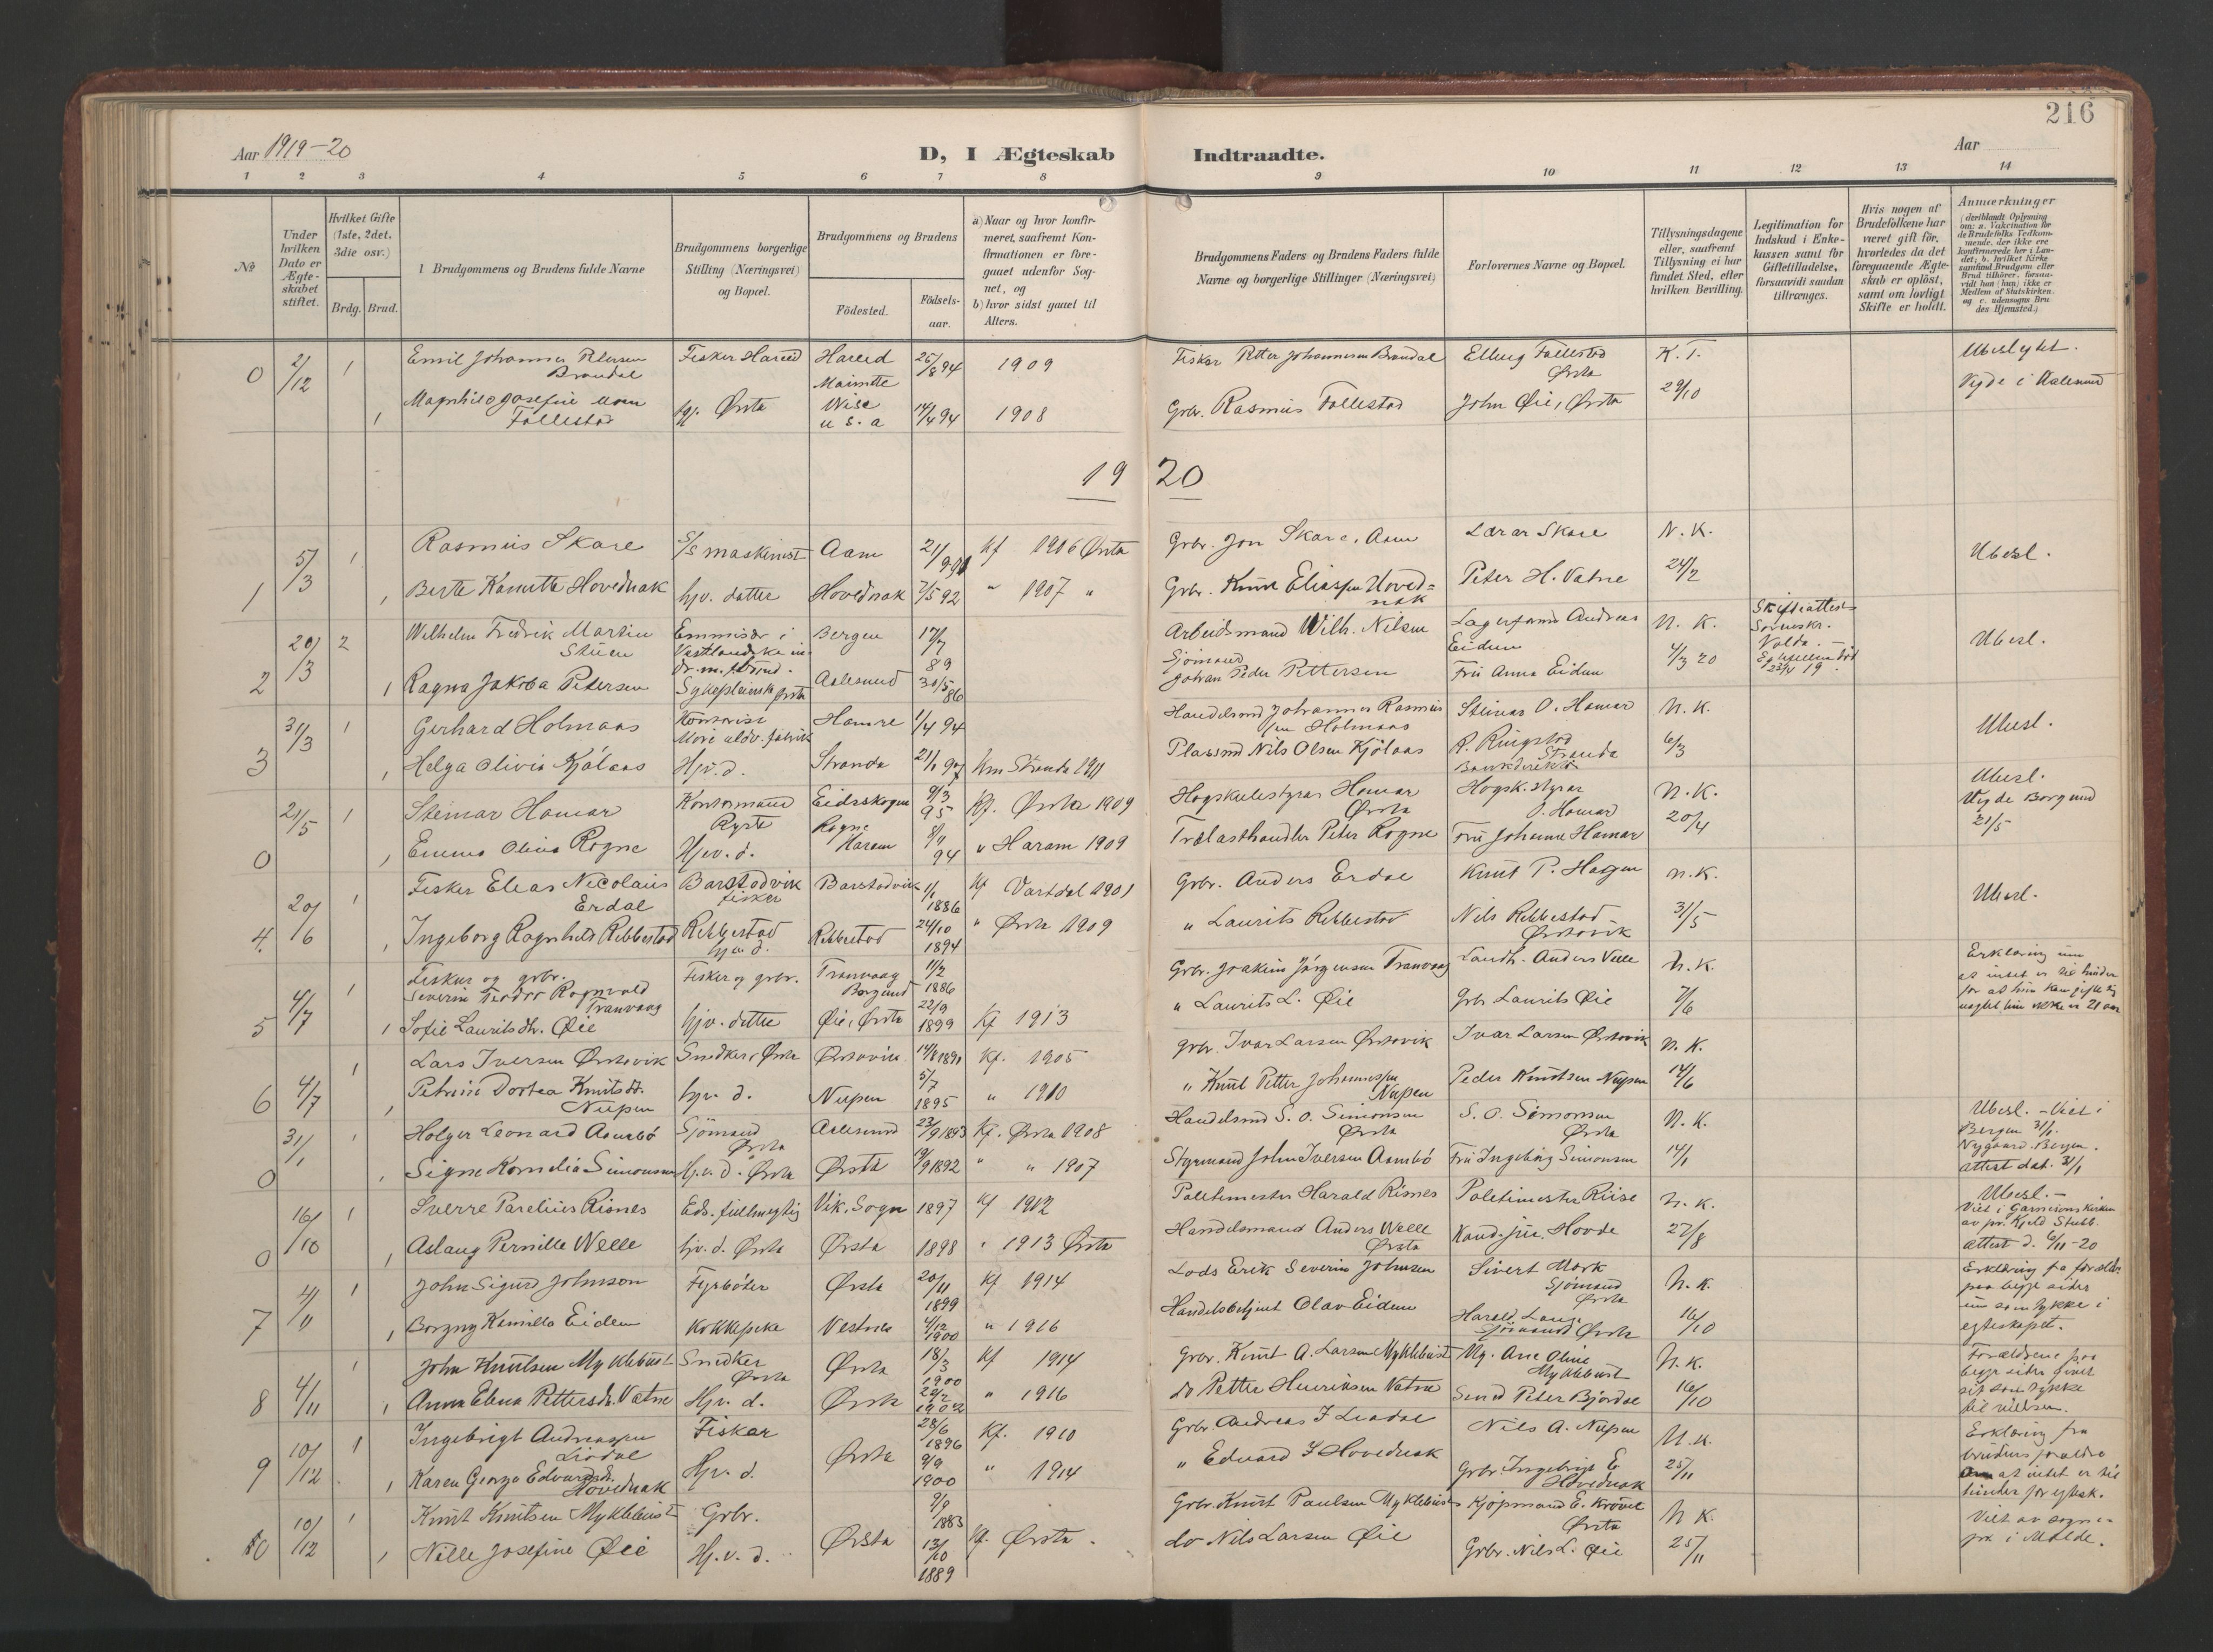 216
Aar 1919-20
D, I Ægteskab
Indtraadte.
Aar
1 2 3 4 5 6 7 8 9 10 11 12 13 14
No
Under hvilken Dato er Ægteskabet stiftet.
Hvilket Gifte (1ste, 2det. 3die osv.)
Brdg. Brud.
1 Brudgommens og Brudens fulde Navne
Brudgommens borgerlige Stilling (Næringsvei) og Bopæl.
Brudgommens og Brudens
Födested.
Födsels-aar.
a) Naar og hvor konfirmeret, saafremt Konfirmationen er foregaaet udenfor Sognet, og
b) hvor sidst gaaet til Alters.
Brudgommens Faders og Brudens Faders fulde Navne og borgerlige Stillinger (Næringsvei)
Forlovernes Navne og Bopæl.
Tillysningsdagene eller, saafremt Tillysning ei har fundet Sted, efter hvilken Bevilling.
Legitimation for Indskud i Enkekassen samt for Giftetilladelse, forsaavidt saadan tiltrænges.
Hvis nogen af Brudefolkene har været gift för, hvorledes da det foregaaende Ægteskab er oplöst, samt om lovligt Skifte er holdt.
Anmerkninger
0 2/12 1 Emil Johannes Petersen Brandal Fisker Hareid Hareid 25/8 94 1909 Fisker Petter Johannesen Brandal Elling Follestad Ørsta K.T. Ubeslegtet.
1 Magnhild Josefine Follestad hj. Ørsta U.S.a 14/4 94 1908 Grbr. Rasmus Follestad John Øie, Ørsta 29/10 Vigde i Aalesund
1920
1 5/3 1 Rasmus Skare S/S maskinist Aam 21/9 91 Kf 1906 Ørsta Grbr. Jon Skare, Aam Lærar Skare N.K. Ubesl.
1 Berte Kanutte Hovednak hjv. datter Hovednak 7/5 92 " 1907 " Grbr. Knut Eliassen Hoved=nak Peter H. Vatne 24/2
2 20/3 2 Wilhelm Fredrik Martin Stüen Emmisær i Bergen 17/7 89 Arbeidsmand Wilh. Nilsen Lagerformd Andreas Eidem N.K. Skifteattest Sorenskr. Volda Ubesl.
1 Ragna Jakoba Petersen Sykepleierske Ørsta Aalesund 30/5 86 Sjømand Johan Peder Pettersen Fru Anna Eidem 4/3 20
3 31/3 1 Gerhard Holmaas Kontorist Hamre 1/4 94 Handelsmd Johannes Rasmussen Holmaas Steinar O. Hamar N.K. Ubesl.
1 Helga Olivia Kjölaas Hjv.d. Stranda 21/1 97 Km Stranda 1911 Plassmd Nils Olsen Kjölaas R. Ringstad Stranda Bankdirektør 6/3
0 21/5 1 Steinar Hamar Kontormand Eidsskogen 9/3 95 Kf. Ørsta 1909 Høgskulestyrar Hamar Ørsta Høgsk.styrar O. Hamar N.K. Ubesl. Vigde Borgund 21/5
1 Emma Olina Rogne Hjv.d. Rogne Haram 8/7 94 " Haram 1909 Trælasthandler Peter Rogne Fru Johanne Hamar 20/4
4. 20/6 1 Fisker Elias Nicolaus Erdal Barstadvik fisker Barstadvik 1/1 1886 Kf Vartdal 1901 Grbr. Anders Erdal Knut P. Hagen N.K. Ubesl.
1 Ingeborg Ragnhild Rebbestad Rebbestad hjv d. Rebbestad 24/10 1894 " Ørsta 1909 " Laurits Rebbestad Nils Rebbestad Ørstavik 31/5
5 4/7 1 Fisker og grbr. Severin Teodor Ragnvald Tranvaag Fisker og grbr. Tranvaag Borgund 11/2 1886 Grbr. Joakim Jørgensen Tranvaag Landh. Anders Velle N.K. Erklæring um at intet er til hinder for at hun kan gifte sig
1 Sofie Lauritsdtr. Øie hjv. datter Øie, Ørsta 22/9 1899 Kf 1913 " Laurits L. Øie Grbr Laurits Øie 7/6
6 4/7 1 Lars Iversen Ørstavik Snedker, Ørsta Ørstavik 14/8 1890 Kf. 1905 Grbr. Ivar Larsen Ørstavik Ivar Larsen Ørstavik N.K.
1 Petrine Dortea Knutsdt. Nupen hjv. d. Nupen 5/7 1895 " 1910 " Knut Petter Johannessen Nupen Peder Knutsen Nupen 14/6
0 31/1 1 Holger Leonard Aambö Sjömand Ørsta Aalesund 23/9 1893 Kf. Ørsta 1908 Handelsmd S. O. Simonsen Ørsta S. O. Simonsen Ørsta N.K. Ubesl. - Viet i Bergen 31/1. Nygaard. Bergen.
1 Signe Kornelia Simonsen Hj.v.d. Ørsta Ørsta 19/9 1892 " " 1907 Styrmand John Iversen Aambö Fru Ingeborg Simonsen 14/1 attest dat. 31/1
0 16/10 1 Sverre Parelius Risnes Eds. fullmegtig Vik, Sogn 1897 Kf 1912 Politimester Harald Risnes Politimester Riise N.K. Ubesl. - Viet i Garnisons Kirken av pr. Kjeld Stubb.
1 Aslaug Pernille Welle hjv.d. Ørsta Ørsta 1898 " 1913 Ørsta Handelsmand Anders Welle Ørsta Kand. jur. Hovde 27/8 attest d. 6/11-20
7 4/11 1 John Sigurd Johnson Fyrböter Ørsta 20/11 1899 Kf 1914 Lods Erik Severin Johnsen Sivert Mork Sjömand Ørsta N.K. Erklæring fra forældr. paa begge sider um samtykke i egteskapet.
1 Borgny Kamilla Eidem Kokkepike Vestnes 4/12 1900 " 1916 Handelsbetjent Olav Eidem Harald Sjömand Ørsta 16/10
8 4/11 1 John Knutsen Myklebust Snedker Ørsta Ørsta 18/3 1900 Kf 1914 Grbr. Knut A. Larsen Myklebust Ug. Ane Oline Myklebust N.K. Forældrene paa begge sider givet sit samtykke til vielsen.
1 Anna Elena Pettersdt. Vatne Hjv. d. Ørsta 20/2 1902 " 1916 do Petter Henriksen Vatne Smed Peter Bjørdal 16/10
9 10/12 1 Ingebrigt Andreassen Liadal Fisker Ørsta 28/6 1896 Kf. 1910 Grbr. Andreas I Liadal Nils A. Nupen N.K. Erklæring fra brudens forældre at intet er til hinder for egtesk.
1 Karen Gurga Edvardsd. Hovednak Hjv. d. 9/9 1900 " 1914 " Edvard I Hovednak Grbr. Ingebrigt E Hovednak 25/11
10 10/12 1 Knut Knutsen Myklebust Grbr. Ørsta 9/9 1883 Kf. Ørsta. Grbr. Knut Paulsen Myklebust Kjöpmand E. Krövel Ørsta N.K. Viet av sogne=pr. i Molde.
1 Nille Josefine Øie Hj.v.d. 13/10 1889 do Nils Larsen Øie Grbr. Nils L. Øie 25/11